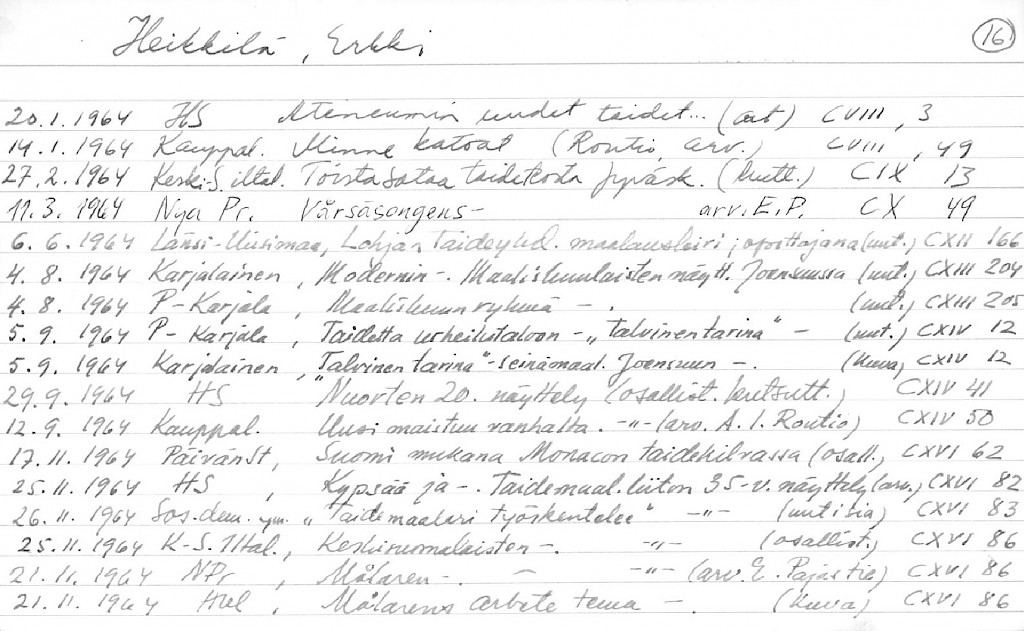 Heikkilä, Erkki 16
20.1.1964 HS Ateneumin uudet taidet... (art) CVIII, 3
14.1.1964 Kauppal. Minne katoat (Routio, arv.) CVIII, 49
27.2.1964 Keski-S. iltal. Toista sataa taidetta Jyväsk. (kutt.) CIX 13
11.3. 1964 Nya Pr. Vårsäsongens - arv. E.P. CX 49
6. 6. 1964 Länsi-Uusimaa, Lohjan taideyhd. maalausleiri; opettajana (uut.) CXII 166
4. 8. 1964 Karjalainen, Modernin -. Maaliskuulaisten näytt. Joensuussa (uut.) CXIII 204
4. 8. 1964 P-Karjala, Maaliskuun ryhmä -. (uut.) CXIII 205
5. 9. 1964 P-Karjala, Taidetta urheilutaloon - "Talvinen tarina" - (uut.) CXIV 12
5.9. 1964 Karjalainen, "Talvinen tarina"-seinämaal. Joensuun -. (kuva) CXIV 12
29.9. 1964 HS Nuorten 20. näyttely (osallist. kutsutt.) CXIV 41
12.9. 1964 Kauppal. Uusi maistuu vanhalta. -"- (arv. A. I. Routio) CXIV 50
17.11. 1964 PäivänSt, Suomi mukana Monacon taidekilvassa (osall.) CXVI 62
25.11. 1964 HS, Kypsää ja -. Taidemaal. liiton 35-v. näyttely (arv.) CXVI 82
26.11.1964 Sos.dem. ym. "Taidemaalari työskentelee" -"- (uutisia) CXVI 83
25.11.1964 K-S. Iltal., Keskisuomalaisten -. -"- (osallist.) CXVI 86
21.11.1964 NPr, Målaren -. -"- (arv. E. Pajastie) CXVI 86
21.11.1964 Hbl, Målarens arbete tema -. (kuva) CXVI 86